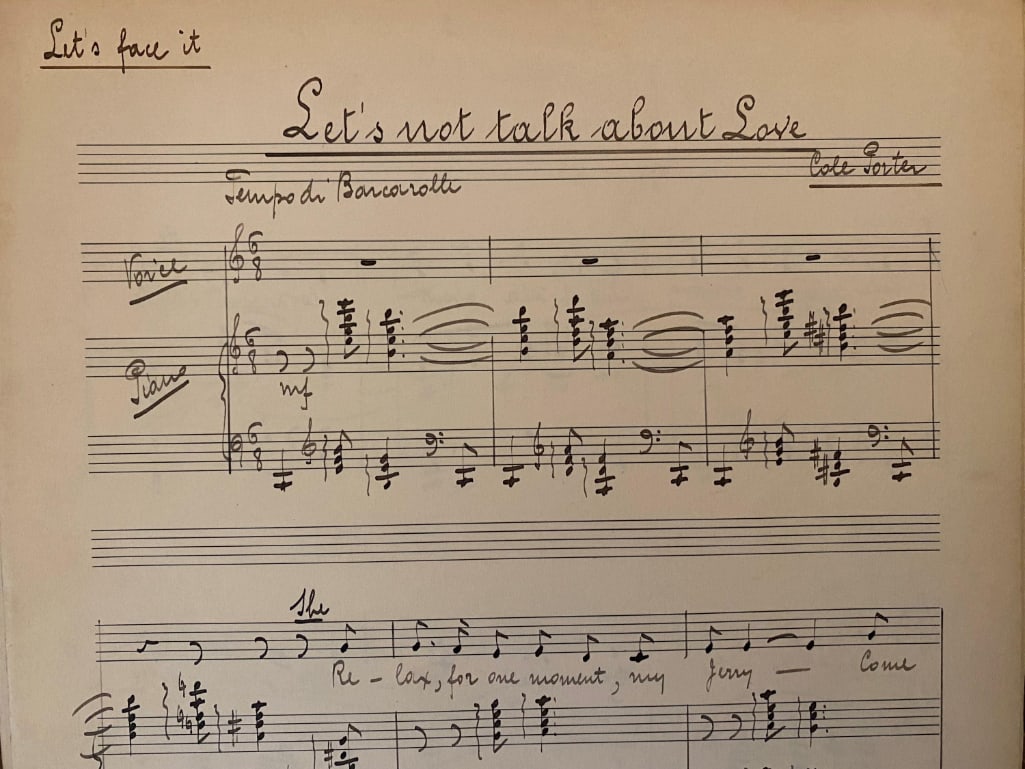 Let's face it
Let's not talk about Love
Cole Porter
Tempo di Barcarolle
Voice
6
8
Piano
6
8
mf
6
8
She
Re - lax, for one moment, my Jerry — Come